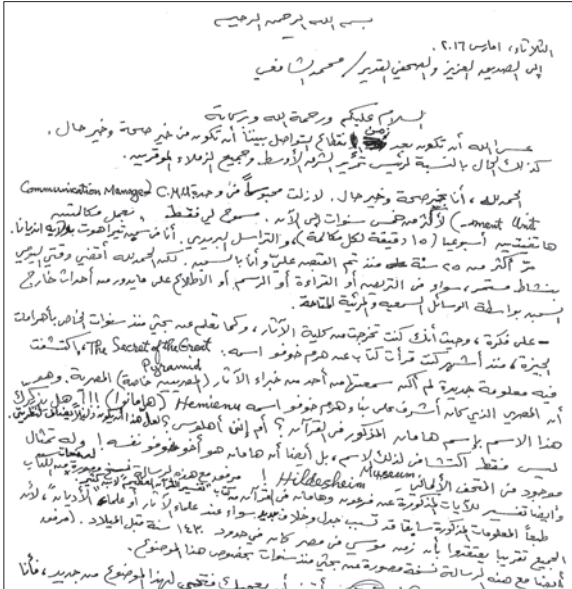 بسم الله الرحمن الرحيم
الثلاثاء، ١ مارس ٢٠١٦
إلى الصديق العزيز والصحفي القدير / محمد الشافعي
السلام عليكم ورحمة الله وبركاته
عسى الله أن تكون بعد زمن انقطاع التواصل بيننا أن تكون في خير صحة وخير حال.
كذلك الحال بالنسبة لرئيس تحرير الشرق الأوسط وجميع الزملاء الموقرين.
الحمد لله، أنا بخير صحة وخير حال. لازلت محبوساً في وحدة C.M.U (Communication Manage-
ment Unit) لأكثر من خمس سنوات إلى الآن. مسموح لي فقط بعمل مكالمتين
هاتفيتين أسبوعيا (١٥ دقيقة لكل مكالمة)، والتراسل البريدي. أنا في سجن تيراهوت بولاية انديانا.
مرّ أكثر من ٢٥ سنة منذ تم القبض عليّ وأنا بالسجن. لكن الحمد لله أقضي وقتي اليومي
بنشاط مستمر، سواء في التريض أو القراءة أو الرسم أو الاطلاع على ما يدور من أحداث خارج
السجن بواسطة الوسائل السمعية والمرئية المتاحة.
- على فكرة، وحيث أنك كنت تخرجت من كلية الآثار، وكما تعلم عن بحثي منذ سنوات الخاص بأهرامات
الجيزة، منذ أشهر كنت قرأت كتاب عن هرم خوفو اسمه: The Secret of the Great Pyramid، اكتشفت
فيه معلومة جديدة لم أكن سمعتها من أحد من خبراء الآثار (المصريين خاصة) المصرية. وهو
أن المصري الذي كان أشرف على بناء هرم خوفو اسمه Hemienu (هامانو)!!! هل يذكرك
هذا الاسم باسم هامان المذكور في القرآن؟ أم إنني أهلوس؟
ليس فقط اكتشافي لذلك الاسم، بل أيضا أن هامان هو أخو خوفو نفسه! وله تمثال
موجود في المتحف الألماني Hildesheim Museum! مرفق مع هذه الرسالة نسخة مصورة من الكتاب
وأيضا تفسير للآيات المذكورة عن فرعون وهامان في القرآن من كتاب "تفسير القرآن العظيم لابن كثير".
طبعاً المعلومات المذكورة سابقا قد تسبب جدل وخلاف جديد سواء عند علماء الآثار أو علماء "الأديان"، لأن
الجميع تقريبا يعتقدوا بأن زمن موسى في مصر كان في حدود ١٤٣٠ سنة قبل الميلاد. (مرفق
أيضا مع هذه الرسالة نسخة مصورة عن بحثي منذ سنوات بخصوص هذا الموضوع).
لهذا الموضوع من جديد، فأنا